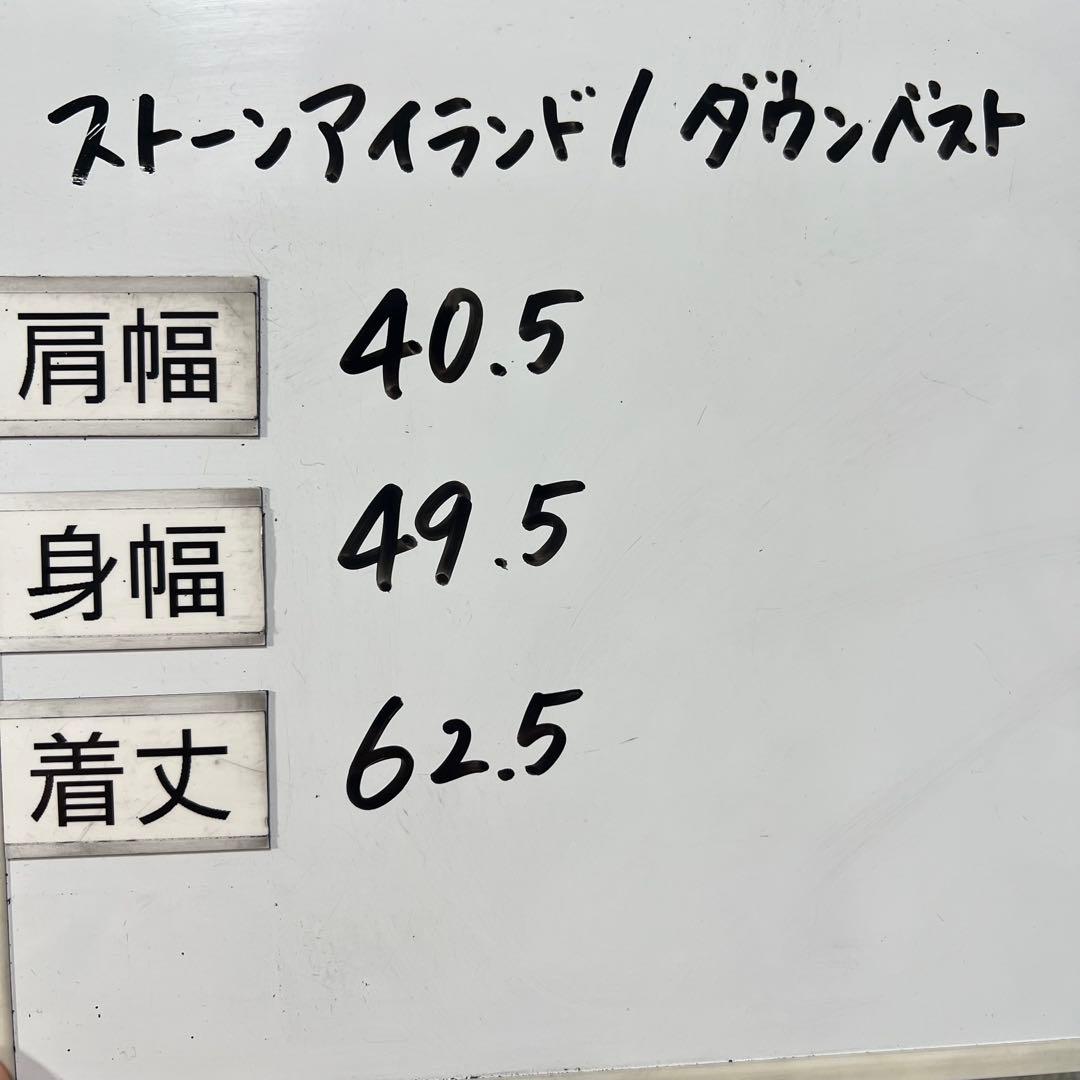 ストーンアイランド/ダウンベスト
肩幅 40.5
身幅 49.5
着丈 62.5